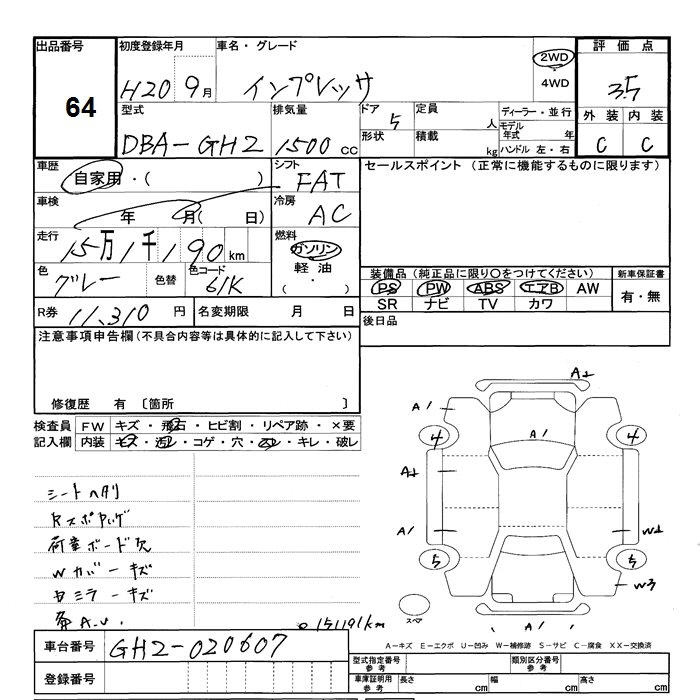 出品番号
64
初度登録年月
H20 9月
車名・グレード
インプレッサ
2WD
4WD
評価点
3.5
外装 内装
C C
型式
DBA-GH2
排気量
1500 cc
ドア 5
形状
定員 人
積載 kg
ディーラー・並行
モデル年式 年
ハンドル 左・右
車歴
自家用・( )
シフト
FAT
セールスポイント (正常に機能するものに限ります)
車検
年 月( 日)
冷房
AC
走行
15万1千190km
燃料
ガソリン
軽油
( ・ )
色
グレー
色替
色コード
61K
装備品(純正品に限り○をつけてください)
新車保証書
PS PW ABS エアB AW
SR ナビ TV カワ
有・無
R券 11,310 円
名変期限 月 日
後日品
注意事項申告欄(不具合内容等は具体的に記入して下さい)
修復歴 有 〔箇所 〕
検査員記入欄
FW キズ・飛石・ヒビ割・リペア跡・×要
内装 キズ・汚レ・コゲ・穴・凹・キレ・破レ
シートヘタリ
荷室ボード欠
Wカバーキズ
ミラーキズ
o 151191km
A2
A1
A1
4
4
A2
A1
W2
5
5
W3
A1
スペア
A－キズ E－エクボ U－凹み W－補修跡 S－サビ C－腐食 XX－交換済
車台番号
GH2-020607
登録番号
型式指定番号 参考
類別区分番号 参考
車庫証明用 参考
長さ cm
幅 cm
高さ cm